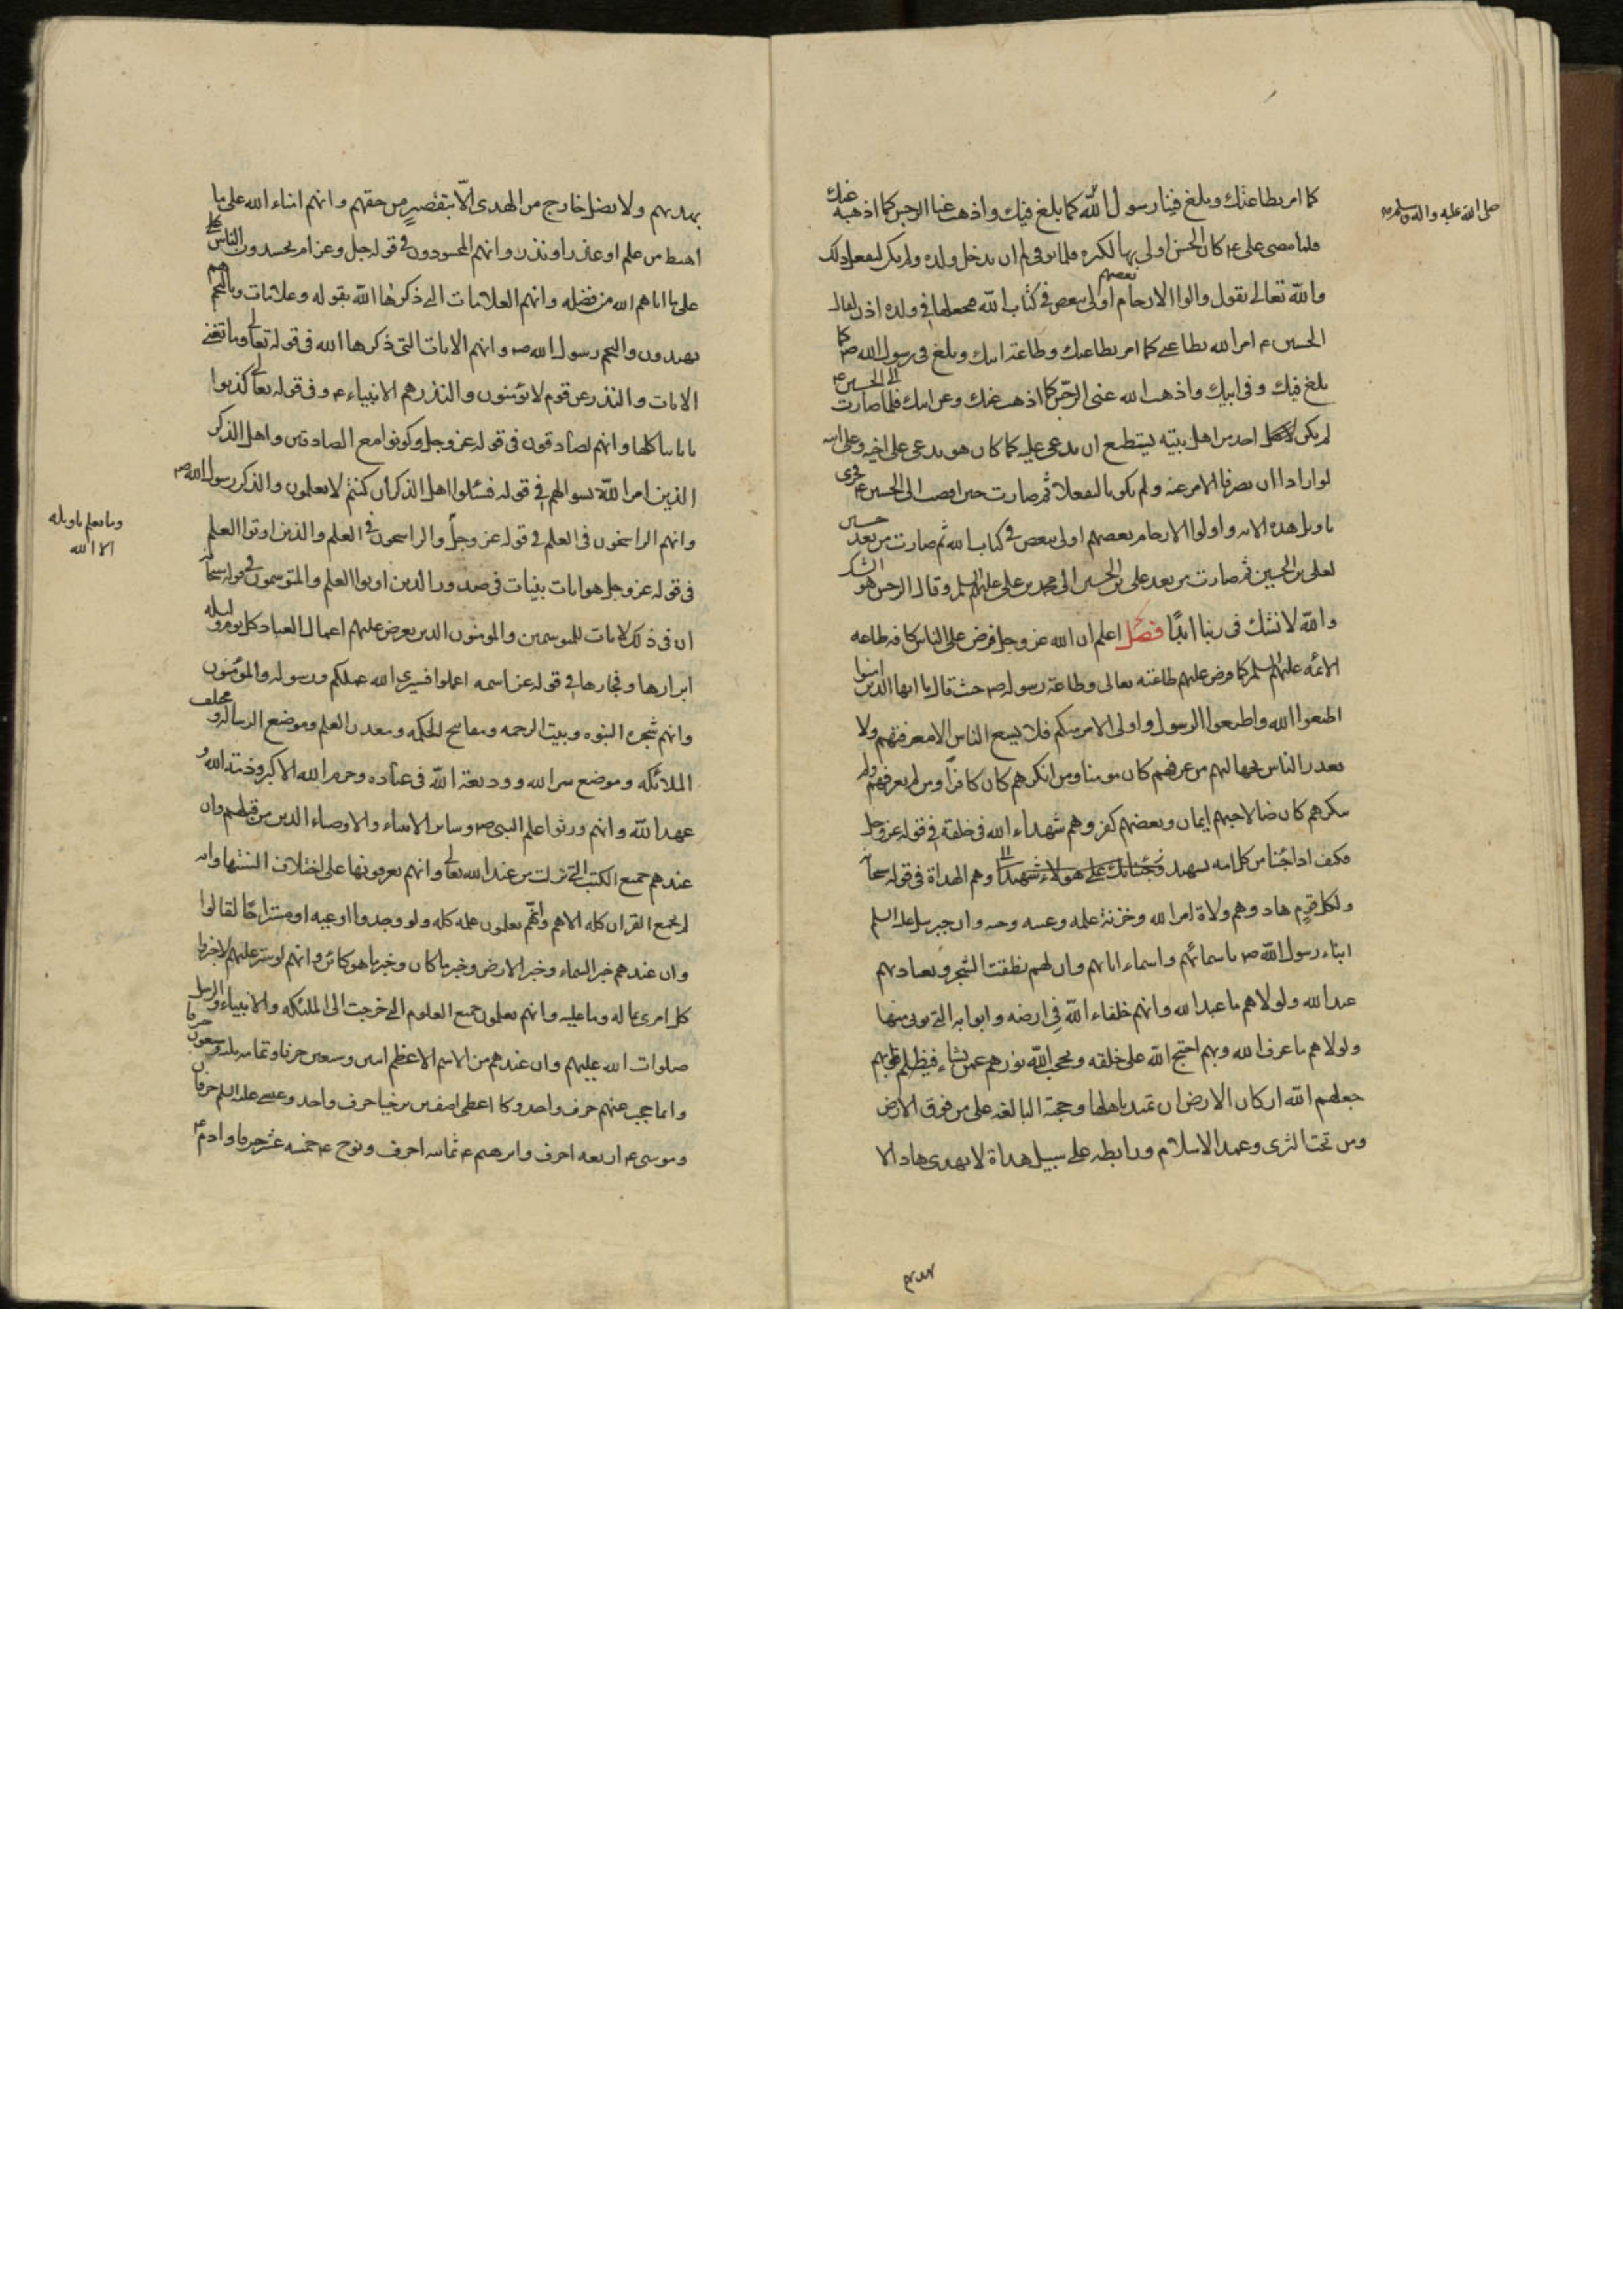 كما امر بطاعتك وبلغ فينا رسول الله كما بلغ فيك واذهب عنا الرجس كما اذهبه عنك
صلى الله عليه واله وسلم
فلما مضى على ع كان الحسن اولى بها لكبره فلما توفى لم ان يدخل ولده ولم يكن ليفعل ذلك
والله تعالى يقول والوا الارحام بعضهم اولى ببعض فى كتاب الله فيجعلها فى ولده اذن لقال
الحسين ع امر الله بطاعتى كما امر بطاعتك وطاعة ابيك وبلغ فى رسول الله ص كما
بلغ فيك وفى ابيك واذهب الله عنى الرجس كما اذهب عنك وعن ابيك فلما صارت الى الحسين ع
لم يكن احد من اهل بيته يستطيع ان يدعى عليه كما كان هو يدعى على اخيه وعلى ابيه
لو ارادا ان يصرفا الامر عنه ولم يكونا ليفعلا ثم صارت حين افضت الى الحسين ع فجرى
تاويل هذه الايه واولوا الارحام بعضهم اولى ببعض فى كتاب الله ثم صارت من بعد حسين
لعلى بن الحسين ثم صارت من بعد على بن الحسين الى محمد بن على عليهم السلم وقال الرجس هو الشك
والله لا نشك فى ربنا ابدا فصل اعلم ان الله عز وجل فرض على الناس كافه طاعه
الائمه عليهم السلم كما فرض عليهم طاعته تعالى وطاعة رسوله ص حيث قال يا ايها الذين امنوا
اطيعوا الله واطيعوا الرسول واولى الامر منكم فلا يسع الناس الا معرفتهم ولا
يعذر الناس بجهالتهم من عرفهم كان مومنا ومن انكرهم كان كافرا ومن لم يعرفهم ولم
ينكرهم كان ضالا حبهم ايمان وبغضهم كفر وهم شهداء الله فى خلقه فى قوله عز وجل
فكيف اذا جئنا من كل امه بشهيد وجئنا بك على هولاء شهيدا وهم الهداة فى قوله سبحانه
ولكل قوم هاد وهم ولاة امر الله وخزنة علمه وعيبه وحيه وان جبرئيل عليه السلم
انباء رسول الله ص باسمائهم واسماء ابائهم وان لهم نطقت الشجر وبعبادتهم
عبد الله ولولاهم ما عبد الله وانهم خلفاء الله فى ارضه وابوابه التى يوتى منها
ولولاهم ما عرف الله وبهم احتج الله على خلقه ويحجب الله نورهم عمن يشاء فيظلم قلوبهم
جعلهم الله اركان الارض ان تميد باهلها وحجته البالغه على من فوق الارض
ومن تحت الثرى وعمد الاسلام ورابطه على سبيل هداة لا يهدى هاد الا
بهديهم ولا يضل خارج من الهدى الا بتقصير من حقهم وانهم امناء الله على ما
اهبط من علم او عذر او نذر وانهم المحسودون فى قوله جل وعز ام يحسدون الناس على
ما اتاهم الله من فضله وانهم العلامات التى ذكرها الله بقوله وعلامات وبالنجم هم
يهتدون والنجم رسول الله ص وانهم الايات التى ذكرها الله فى قوله تعالى وما تغنى
الايات والنذر عن قوم لا يومنون والنذر هم الانبياء ع وفى قوله تعالى كذبوا
باياتنا كلها وانهم لصادقون فى قوله عز وجل وكونوا مع الصادقين واهل الذكر
الذين امر الله بسوالهم فى قوله فسئلوا اهل الذكر ان كنتم لا تعلمون والذكر رسول الله ص
وانهم الراسخون فى العلم فى قوله عز وجل والراسخون فى العلم والذين اوتوا العلم
وما يعلم تاويله
الا الله
فى قوله عز وجل هو ايات بينات فى صدور الذين اوتوا العلم والمتوسمون فى قوله سبحانه
ان فى ذلك لايات للمتوسمين والمومنون الذين يعرض عليهم اعمال العباد كل يوم وليله
ابرارها وفجارها فى قوله عز اسمه اعملوا فسيرى الله عملكم ورسوله والمؤمنون
وانهم شجره النبوه وبيت الرحمه ومفاتيح الحكمه ومعدن العلم وموضع الرساله ومختلف
الملائكه وموضع سر الله ووديعة الله فى عباده وحرم الله الاكبر وذمة الله و
عهد الله وانهم ورثوا علم النبى ص وساير الانبياء والاوصياء الذين من قبلهم وان
عندهم جميع الكتب التى نزلت من عند الله تعالى وانهم يعرفونها على اختلاف السنتها وانه
لم يجمع القران كله الا هم وانهم يعلمون علمه كله ولو وجدوا اوعيه او مستراحا لقالوا
وان عندهم خبر السماء وخبر الارض وخبر ما كان وخبر ما هو كائن وانهم لو ستر عليهم لاخبروا
كل امرى بما له وما عليه وانهم يعلمون جميع العلوم التى خرجت الى الملئكه والانبياء والرسل
صلوات الله عليهم وان عندهم من الاسم الاعظم اثنين وسبعين حرفا وتمامه ثلثه وسبعون حرفا
وانما حجب عنهم حرف واحد وكا اعطى اصف بن برخيا حرف واحد وعيسى عليه السلم حرفان
وموسى ع اربعه احرف وابرهيم ع ثمانيه احرف ونوح ع خمسه عشر حرفا وادم ع